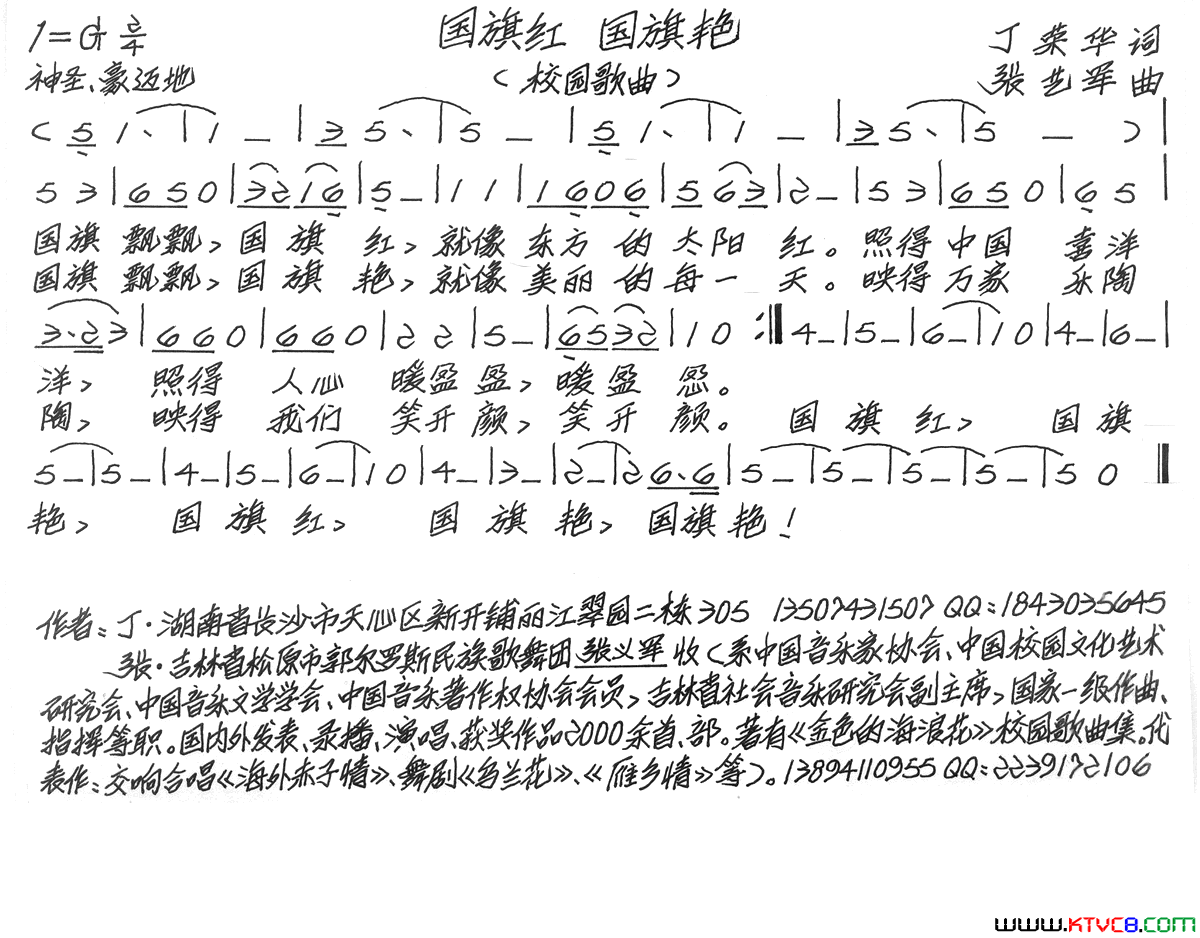 1=G 2/4 国旗红 国旗艳 丁荣华 词
神圣、豪迈地 (校园歌曲) 张艺军 曲
( 5 1、 | 1 － | 3 5、 | 5 － | 5 1、 | 1 － | 3 5、 | 5 － ) |
5 3 | 6 5 0 | 3 2 1 6 | 5 － | 1 1 | 1 6 0 6 | 5 6 3 | 2 － | 5 3 | 6 5 0 | 6 5 |
国旗 飘飘, 国旗 红, 就像 东方 的 太阳 红。 照得 中国 喜洋
国旗 飘飘, 国旗 艳, 就像 美丽 的 每一 天。 映得 万家 乐陶
3·2 3 | 6 6 0 | 6 6 0 | 2 2 | 5 － | 6 5 3 2 | 1 0 :‖ 4 － | 5 － | 6 － | 1 0 | 4 － | 6 － |
洋, 照得 人心 暖盈 盈, 暖盈 盈。
陶, 映得 我们 笑开 颜, 笑开 颜。 国 旗 红, 国 旗
5 － | 5 － | 4 － | 5 － | 6 － | 1 0 | 4 － | 3 － | 2 － | 2 6·6 | 5 － | 5 － | 5 － | 5 － | 5 0 ‖
艳, 国 旗 红, 国 旗 艳, 国旗 艳!
作者: 丁·湖南省长沙市天心区新开铺丽江翠园二栋305 13507431507 QQ:1843035645
张·吉林省松原市郭尔罗斯民族歌舞团 张义军 收(系中国音乐家协会、中国校园文化艺术
研究会、中国音乐文学学会、中国音乐著作权协会会员,吉林省社会音乐研究会副主席,国家一级作曲、
指挥等职。国内外发表、录播、演唱、获奖作品2000余首、部。著有《金色的海浪花》校园歌曲集。代
表作:交响合唱《海外赤子情》、舞剧《乌兰花》、《雁乡情》等)。13894110955 QQ:2239172106
www.KTVC8.com